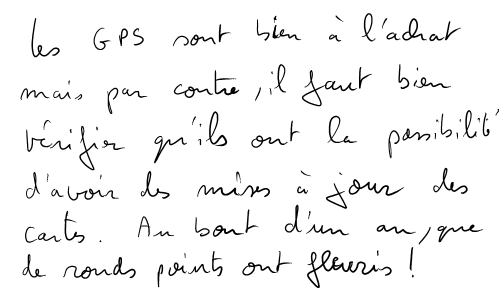 Les GPS sont bien à l'achat
mais par contre, il faut bien
vérifier qu'ils ont la possibilité
d'avoir des mises à jour des
cartes. Au bout d'un an, que
de ronds points ont fleuris !